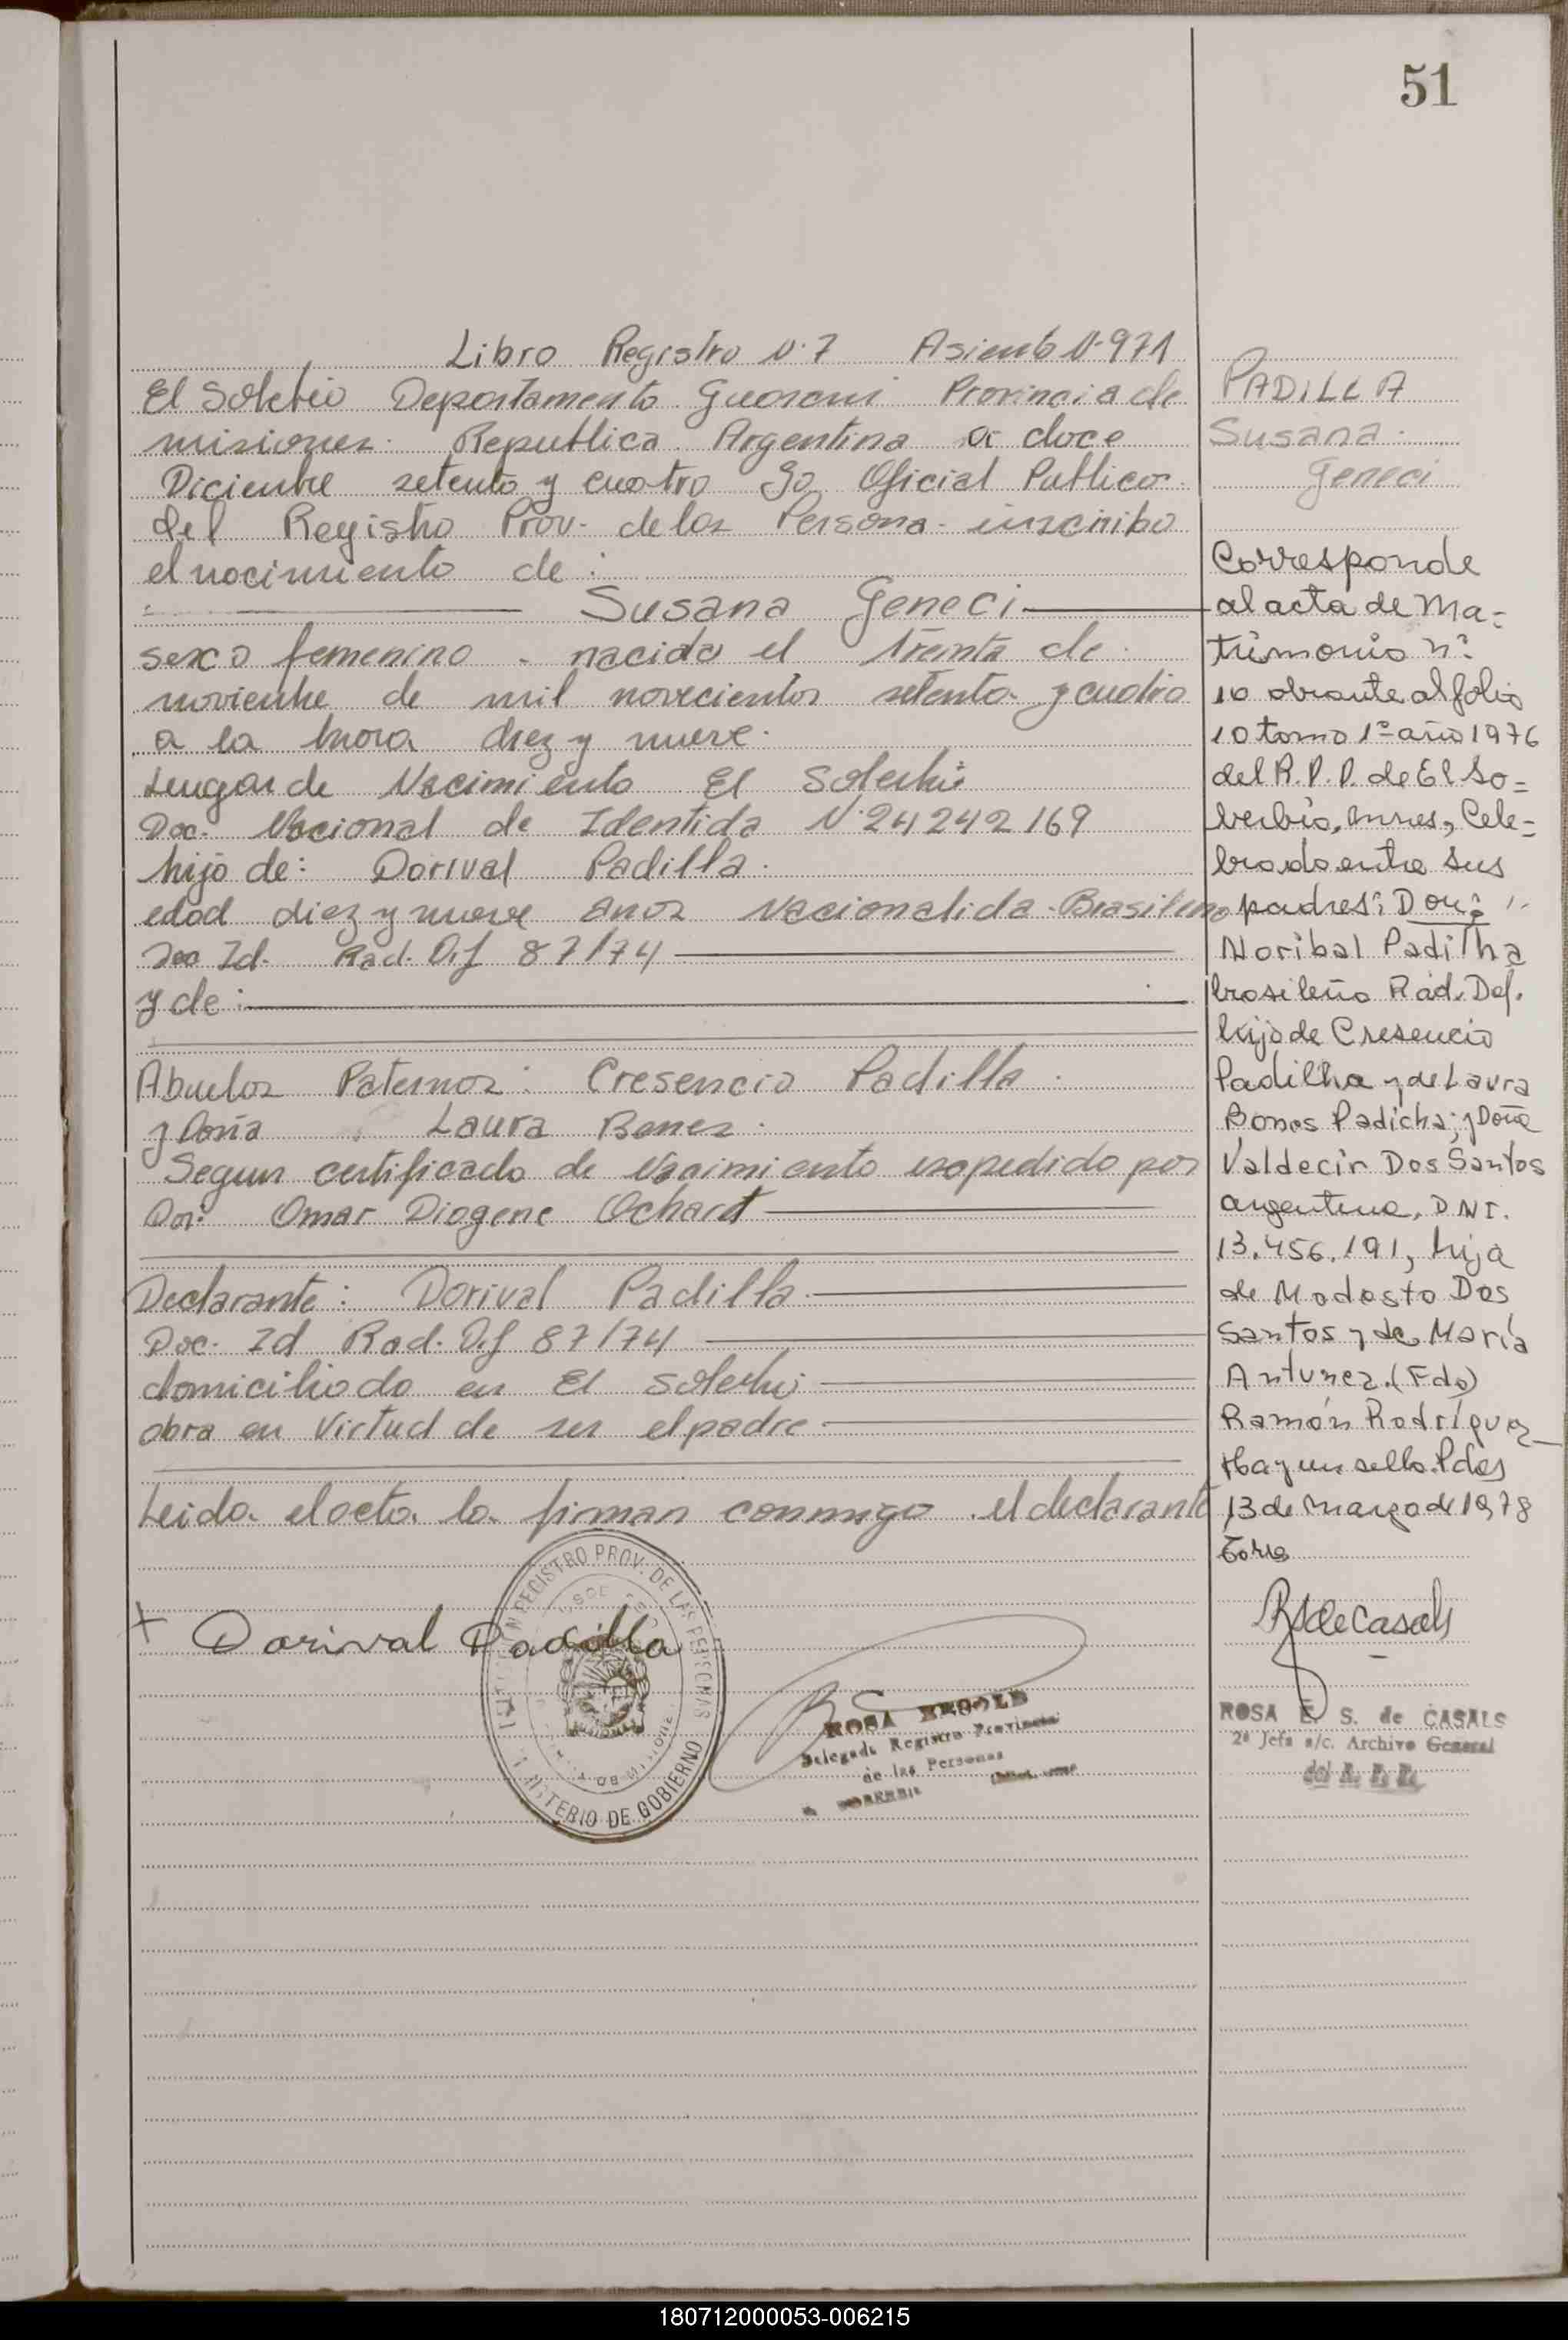 51
Libro Registro N·7 Asiento N·971
El Soberbio Departamento Guarani Provincia de
misiones. Republica Argentina a doce
Diciembre setenta y cuatro Yo Oficial Publico
del Registro Prov. de las Persona. inscribo
el nacimiento de :
Susana Geneci
sexo femenino . nacido el treinta de
noviembre de mil novecientos setenta y cuatro
a la hora diez y nueve.
Lugar de Nacimiento El Soberbio
Doc. Nacional de Identida N·24242169
hijo de: Dorival Padilla.
edad diez y nueve anos Nacionalida. Brasilino
Doc Id. Rad. Dif 87/74
y de :
Abuelos Paternos: Cresencio Padilla.
y Doña Laura Bones.
Segun certificado de Nacimiento expedido por
Dor: Omar Diogene Ochart
Declarante: Dorival Padilla.
Doc. Id Rad. Dif 87/74
domiciliado en El Soberbi
obra en Virtud de ser el padre.
Leida el acta la firman conmigo el declarante
+ Dorival Padilla
REGISTRO PROV. DE LAS PERSONAS
MINISTERIO DE GOBIERNO
ROSA
Delegada Registro Provincial
de las Personas
SOBERBIO
PADILLA
Susana.
Geneci
Corresponde
al acta de Ma=
trimonio nº
10 obrante al folio
10 tomo 1º año 1976
del R.P.P. de El So=
berbio, Mnes, Cele=
brado entre sus
padres: Don:
Noribal Padilha
brasileño Rad. Def.
hijo de Cresencio
Padilha y de Laura
Bones Padicha; y Doña
Valdecir Dos Santos
argentina, DNI.
13.456.191, hija
de Modesto Dos
Santos y de María
Antunez. (Fdo)
Ramón Rodríguez
Hay un sello. Pdas
13 de Marzo de 1978
RSdeCasals
ROSA E. S. de CASALS
2ª Jefa a/c. Archivo General
del R. P. P.
180712000053-006215